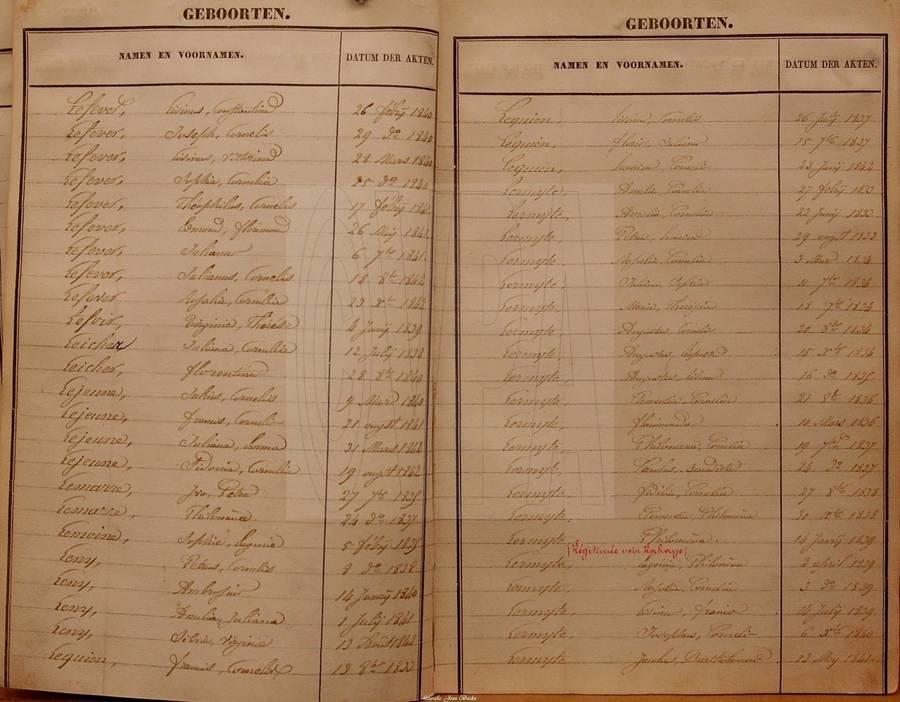 GEBOORTEN.
NAMEN EN VOORNAMEN. DATUM DER AKTEN.
Lefever, Constantin 26 febrij 1840
Lefever, Joseph, Cornelis 29 do 1840
Lefever, 28 Mars 1840
Lefever, Sophia, Cornelia 25 do 1840
Lefever, Théophilus, Cornelis 17 febrij 1841
Lefever, Edmond, florimond 26 Meij 1841
Lefever, Julianus 6 7bre 1841
Lefever, Julianus, Cornelis 18 8bre 1842
Lefever Rosalia, Cornelia 23 Xbre 1842
Virginia, Thérèse 4 Junij 1839
Leicher Juliana, Cornelia 12 Julij 1838
Leicher, florentina 28 8bre 1840
Lejeune, Julius, Cornelis 9 1840
Lejeune, francis, Cornelis 21 augst 1841
Lejeune, Juliana, 31 Mars 1842
Lejeune, Sidonia, Cornelia 19 augst 1842
Lemarre, Ivo, Petrus 27 7bre 1835
Lemarre, Philomèna 24 do 1837
Lemoine, Sophie, Eugenia 5 febrij 1835
Leny, Petrus, Cornelis 8 do 1838
Leny, Ambrosius 14 Janrij 1840
Leny, Amelia, Juliana 1 Julij 1841
Leny, Silvia, Virginia 13 1842
Lequien, francis, Cornelis 13 8bre 1833
GEBOORTEN.
NAMEN EN VOORNAMEN. DATUM DER AKTEN.
Lequien, Cornelis 26 Julij 1837
Lequien, Juliana 15 7bre 1837
Lequien, 23 Junij 1842
Lermyte, Amelia, Cornelia 27 febrij 1833
Lermyte, Amelia, Cornelia 22 Junij 1833
Lermyte, Petrus, 29 augst 1833
Lermyte, Rosalia, Cornelia 3 1834
Lermyte, Julia, Sophia 11 7bre 1834
Lermyte, Maria, Thérèsia 18 7bre 1834
Lermyte, Augustus, Cornelis 20 8bre 1834
Lermyte, Augustus, 15 Xbre 1834
Lermyte, Augustus, 16 do 1835
Lermyte, Cornelia 21 8bre 1836
Lermyte, florimond 10 Mars 1836
Lermyte, Philomena, Cornelia 19 7bre 1837
Lermyte, Carolus, Benedictus 24 do 1837
Lermyte, Fidelia, Cornelia 27 8bre 1838
Lermyte, Philomena 30 Xbre 1838
Lermyte, Philomèna. 14 Janrij 1839
(Légitimée voir Lachaye)
Lermyte, Eugenia, Philomena 2 april 1839
Lermyte, Rosalia, Cornelia 3 do 1839
Lermyte, francis 14 Julij 1839
Lermyte, Josephus, Cornelis 6 Xbre 1840
Lermyte, Jacobus, Bartholomeus 13 Meij 1841